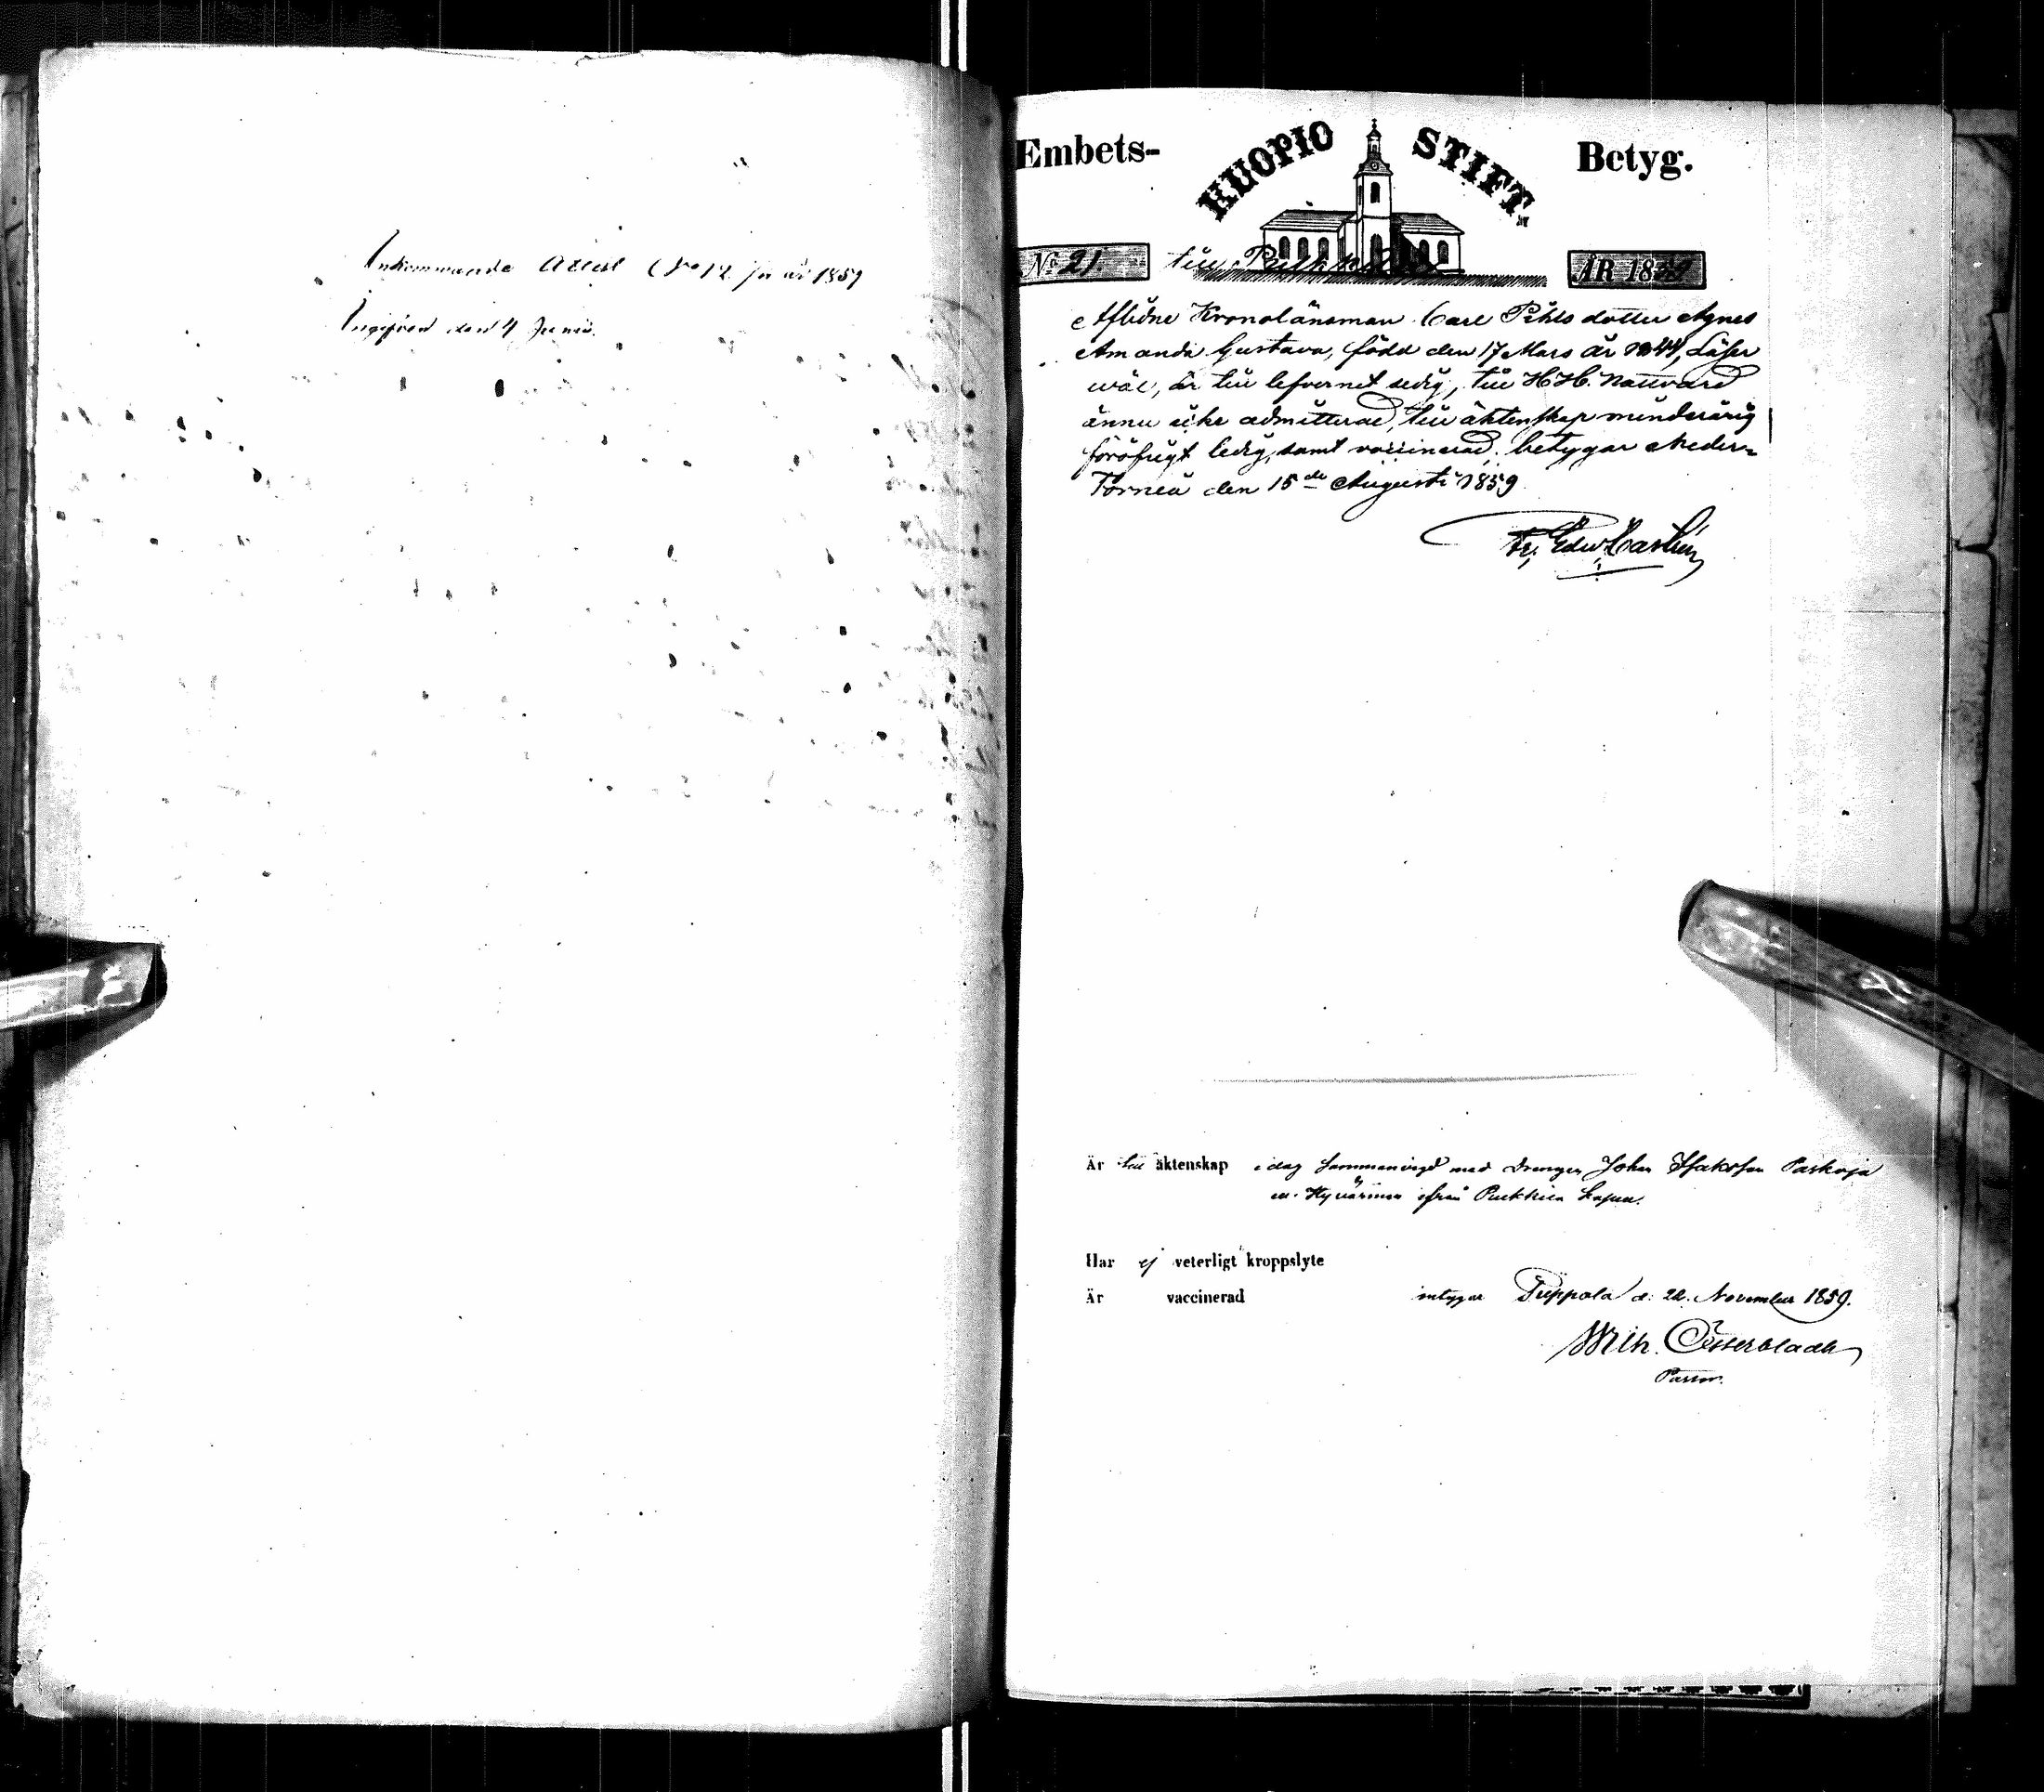 Inkommande Attest No 12 för år 1859
Ingifven den 4 Junii.
Embets- KUOPIO STIFT. Betyg.
No 21. till Pulkkila ÅR 1859
Aflidne Kronolänsman Carl Pihls dotter Agnes
Amanda Gustava, född den 17 Mars år 1844, Läser
wäl, är till lefvernet sedig, till H. H. Nattvard
ännu icke admitterad, till äktenskap minderårig
föröfrigt ledig, samt vaccinerad, betygar Neder-
Torneå den 15de Augusti 1859
Fr. Edw. Castrén
Är till äktenskap i dag sammanvigd med Drengen Johan Isaksson Paskoja
Hyvärinen ifrån Pulkkila
Har ej veterligt kroppslyte
Är vaccinerad intygar Piippola d. 22. November 1859.
Wilh. Österbladh
Pastor.